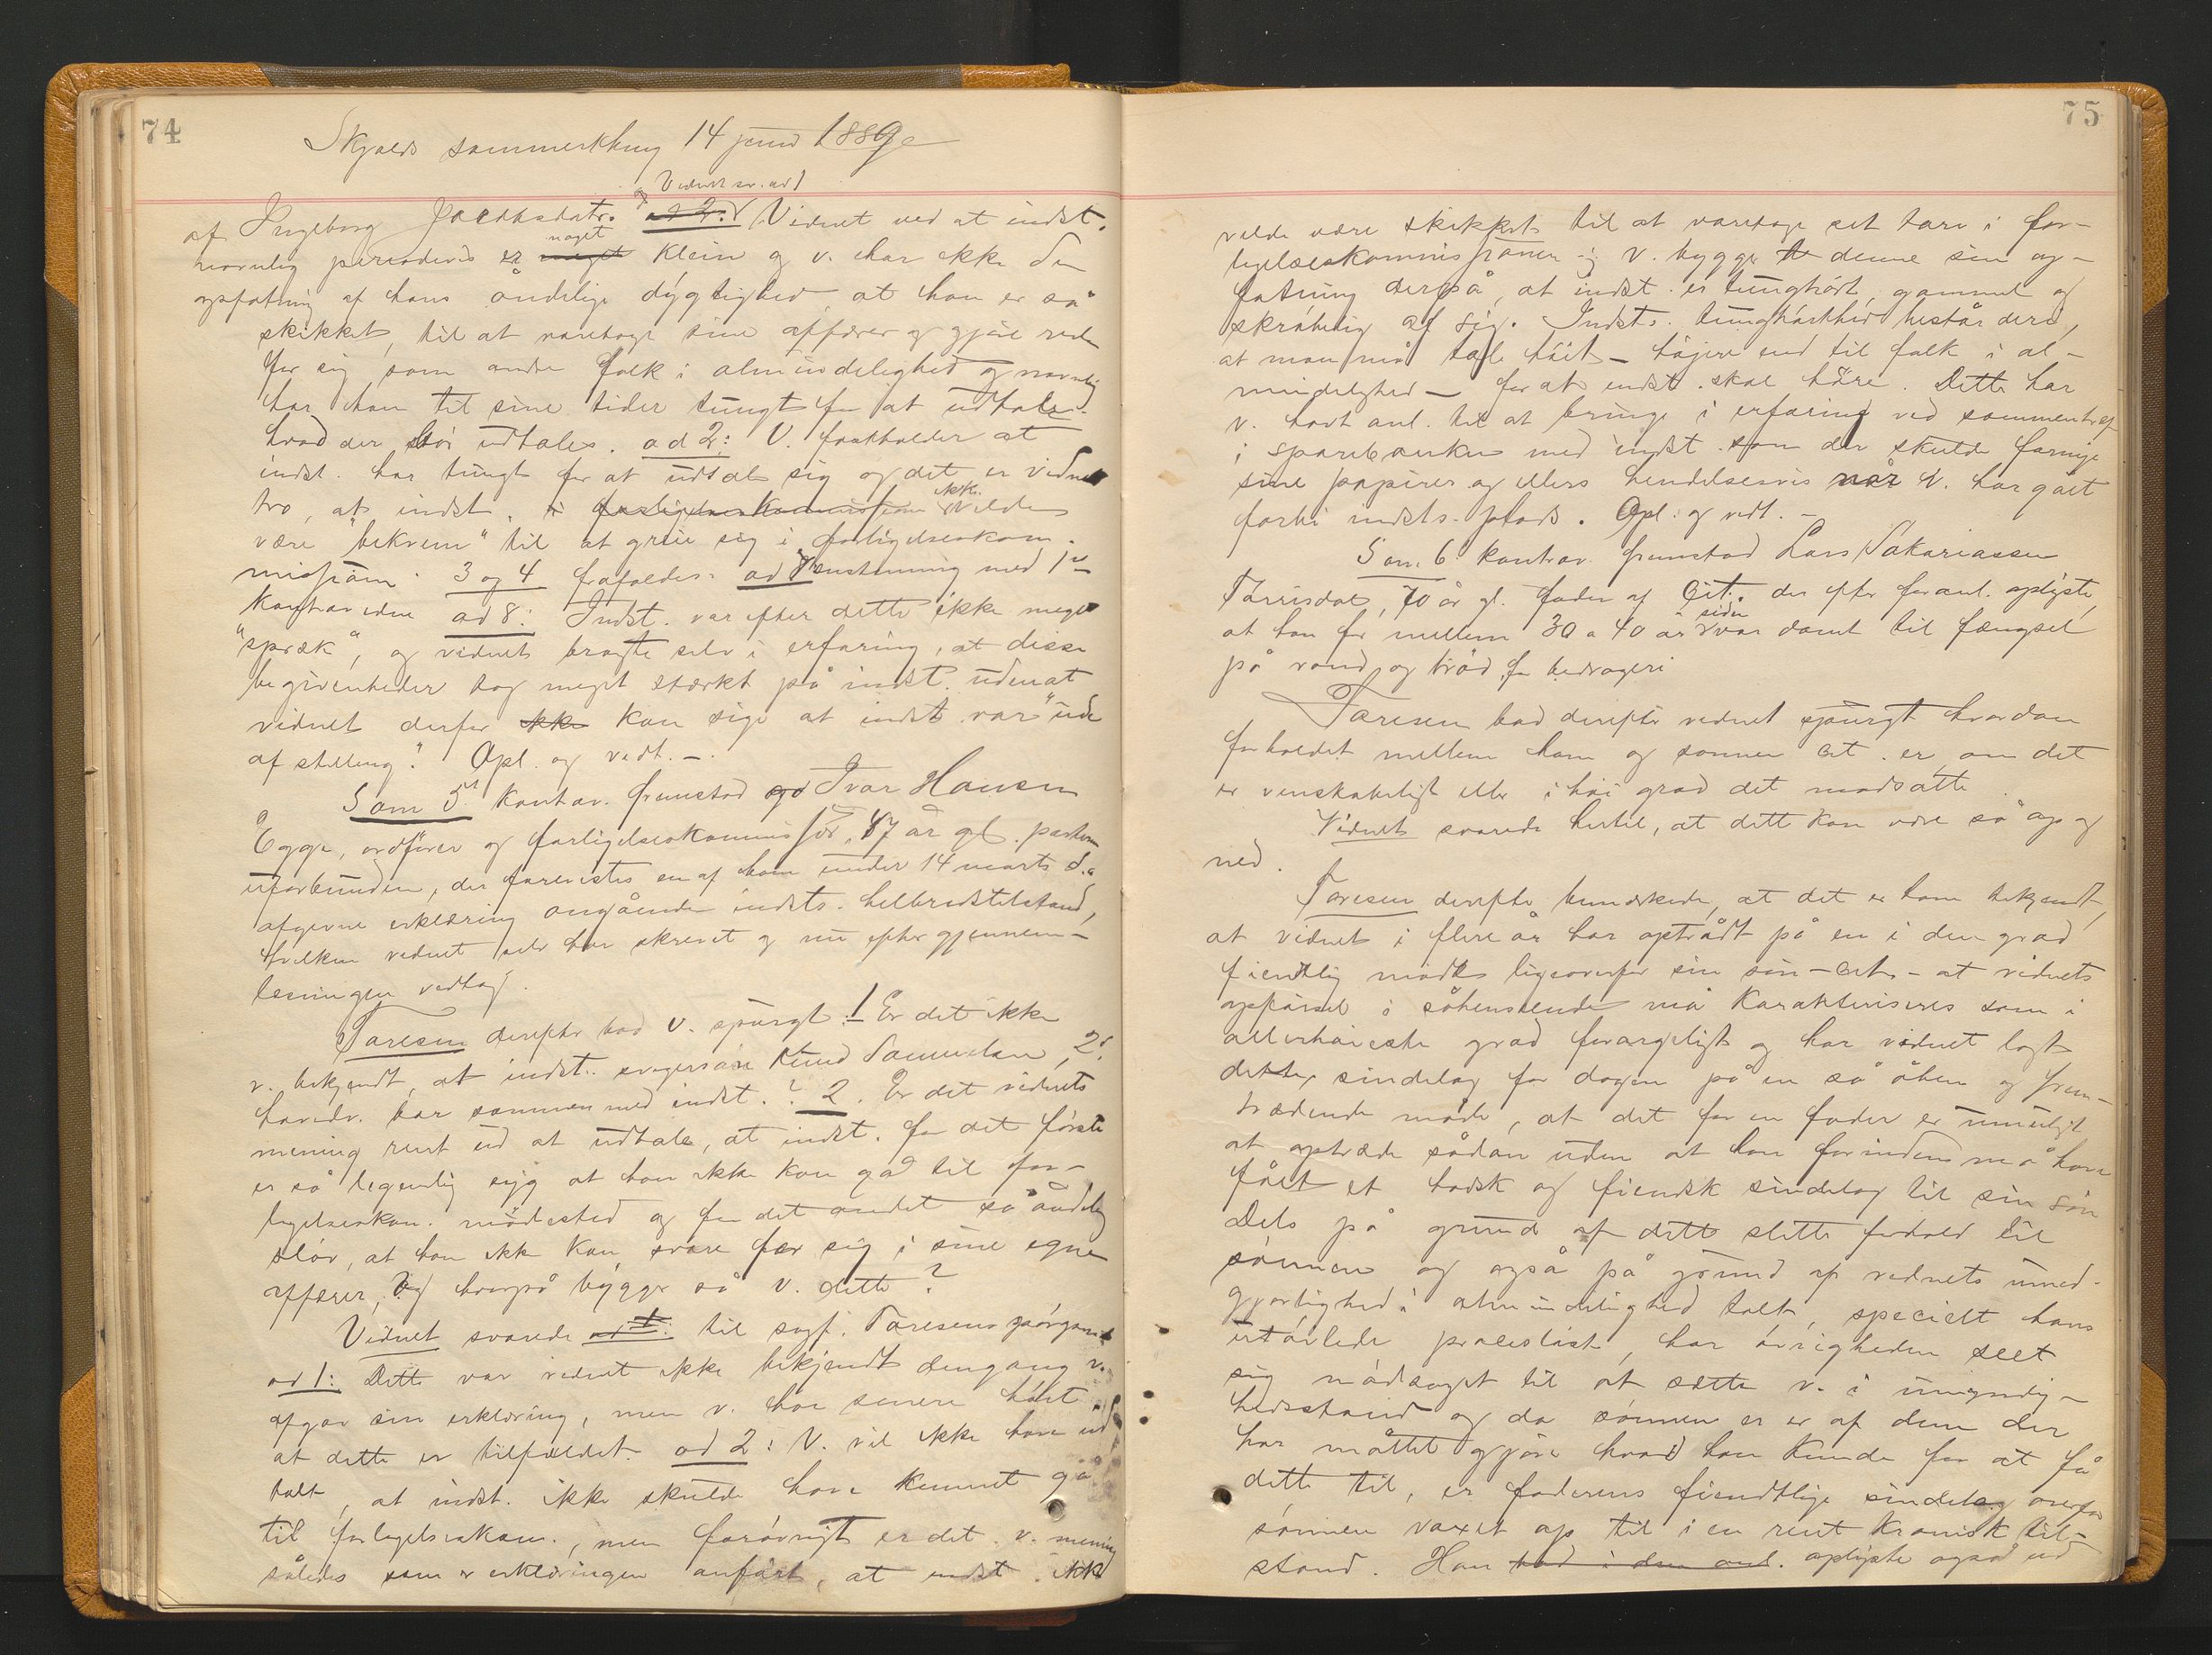 74
Skjolds sommerthing 14 juni 1889
Vidnet sv. ad 1
af Ingeborg Jacobsdatr. ad 2: Vidnet ved at indst.
navnlig periodevis er meget noget klein og v. har ikke den
opfatning af hans åndelige dygtighed at han er så
skikket, til at varetage sine affærer og gjøre rede
for sig som andre folk i almindelighed og navnlig
har han til sine tider tungt for at udtale
hvad der bør udtales. ad 2: V. fastholder at
indst. har tungt for at udtale sig og det er vidnets
tro, at indst. i forligelseskommissionen ikke vilde
være "bekvem" til at greie sig i forligelseskom-
missionen. 3 og 4 frafaldes. ad 7 enstemmig med 1ste
kontravidne ad 8: Indst. var efter dette ikke meget
"spræk", og vidnet bragte selv i erfaring, at disse
begivenheder tog meget stærkt på indst. uden at
vidnet derfor ikke kan sige at indst. var "ude
af stilling". Opl. og vedt. -
Som 5. kontrav. fremstod Ivar Hansen
Egge, ordfører og forligelseskommissær, 47 år gl. partern
uforbunden, der forevistes en af ham under 14 marts d.a.
afgivne erklæring angående indsts. helbredstilstand,
hvilken vidnet selv har skrevet og nu efter gjennem-
læsningen vedtog.
Taresen derefter bad v. spurgt: 1 Er det ikke
v. bekjendt, at indst. svigersøn Knud Samuelsen, 2det
hovedv. bor sammen med indst.? 2. Er det vidnets
mening rent ud at udtale, at indst. for det første
er så legemlig syg at han ikke kan gå til for-
ligelseskom. mødested og for det andet så åndelig
sløv, at han ikke kan svare for sig i sine egne
affærer, og hvorpå bygger så v. dette?
Vidnet svarede ad 1: til sagf. Taresens spørgsmål
ad 1: Dette var vidnet ikke bekjendt dengang v.
afgav sin erklæring, men v. har senere hørt
at dette er tilfældet. ad 2: V. vil ikke have ud-
talt, at indst. ikke skulde have kunnet gå
til forligelseskom., men forøvrigt er det v. mening
således som i erklæringen anført, at indst. ikke
75
vilde være skikket til at varetage sit tarv i for-
ligelseskommissionen og v. bygger denne sin op-
fatning derpå, at indst. er tunghørt, gammel og
skrøbelig af sig. Indsts. tunghørthed består deri,
at man må tale høit - høiere end til folk i al-
mindelighed - for at indst. skal høre. Dette har
v. havt anl. til at bringe i erfaring ved sammentræf
i sparebanken med indst. som der skulde fornye
sine papirer og ellers hendelsesvis når v. har gået
forbi indsts. plads. Opl. og vedt. -
Som 6 kontrav. fremstod Lars Sakariassen
Tørrisdal, 70 år gl. fader af Cit. der efter foranl. oplyste,
at han for mellem 30 a 40 år siden var dømt til fængsel
på vand og brød for bedrageri
Taresen bad derefter vidnet spurgt hvordan
forholdet mellem ham og sønnen cit. er, om det
er venskabeligt eller i høi grad det modsatte.
Vidnet svarede hertil, at dett kan være så op og
ned.
Taresen derefter bemærkede, at det er ham bekjendt,
at vidnet i flere år har optrådt på en i den grad
fiendtlig måde ligeoverfor sin søn - cit. - at vidnets
opførsel i såhenseende må karakteriseres som i
allerhøieste grad forargeligt og har vidnet lagt
dette sindelag for dagen på en så åben og frem-
trædende måde, at det for en fader er umuligt
at optræde sådan uden at han forinden må have
fået et hadsk og fiendsk sindelag til sin søn
Dels på grund af dette slette forhold til
sønnen og også på grund af vidnets umed-
gjørlighed i almindelighed talt, specielt hans
utøilede proceslyst, har øvrigheden seet
sig nødsaget til at sætte v. i umyndig-
hedsstand og da sønnen er en af dem der
har måttet gjøre hvad han kunde for at få
dette til, er faderens fiendtlige sindelag overfor
sønnen voxet op til i en rent kronisk til-
stand. Han bad i den anl. oplyste også ud